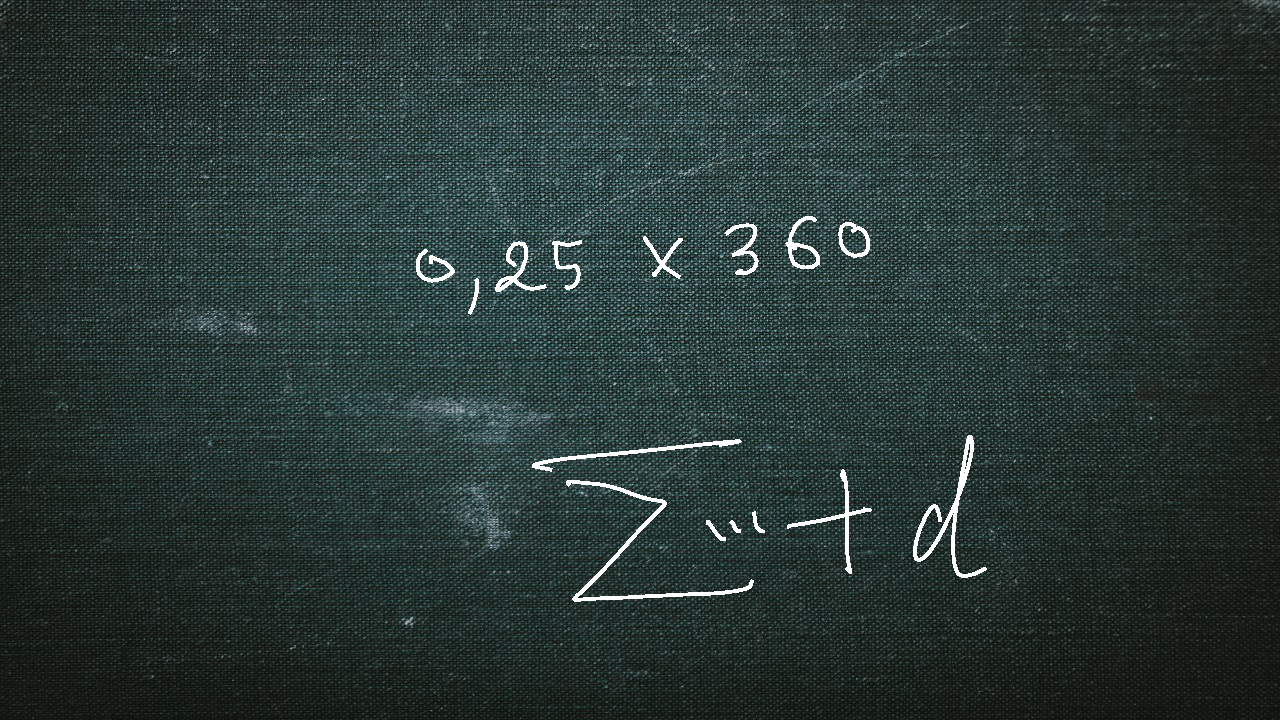 0,25 x 360
∑ ... + d